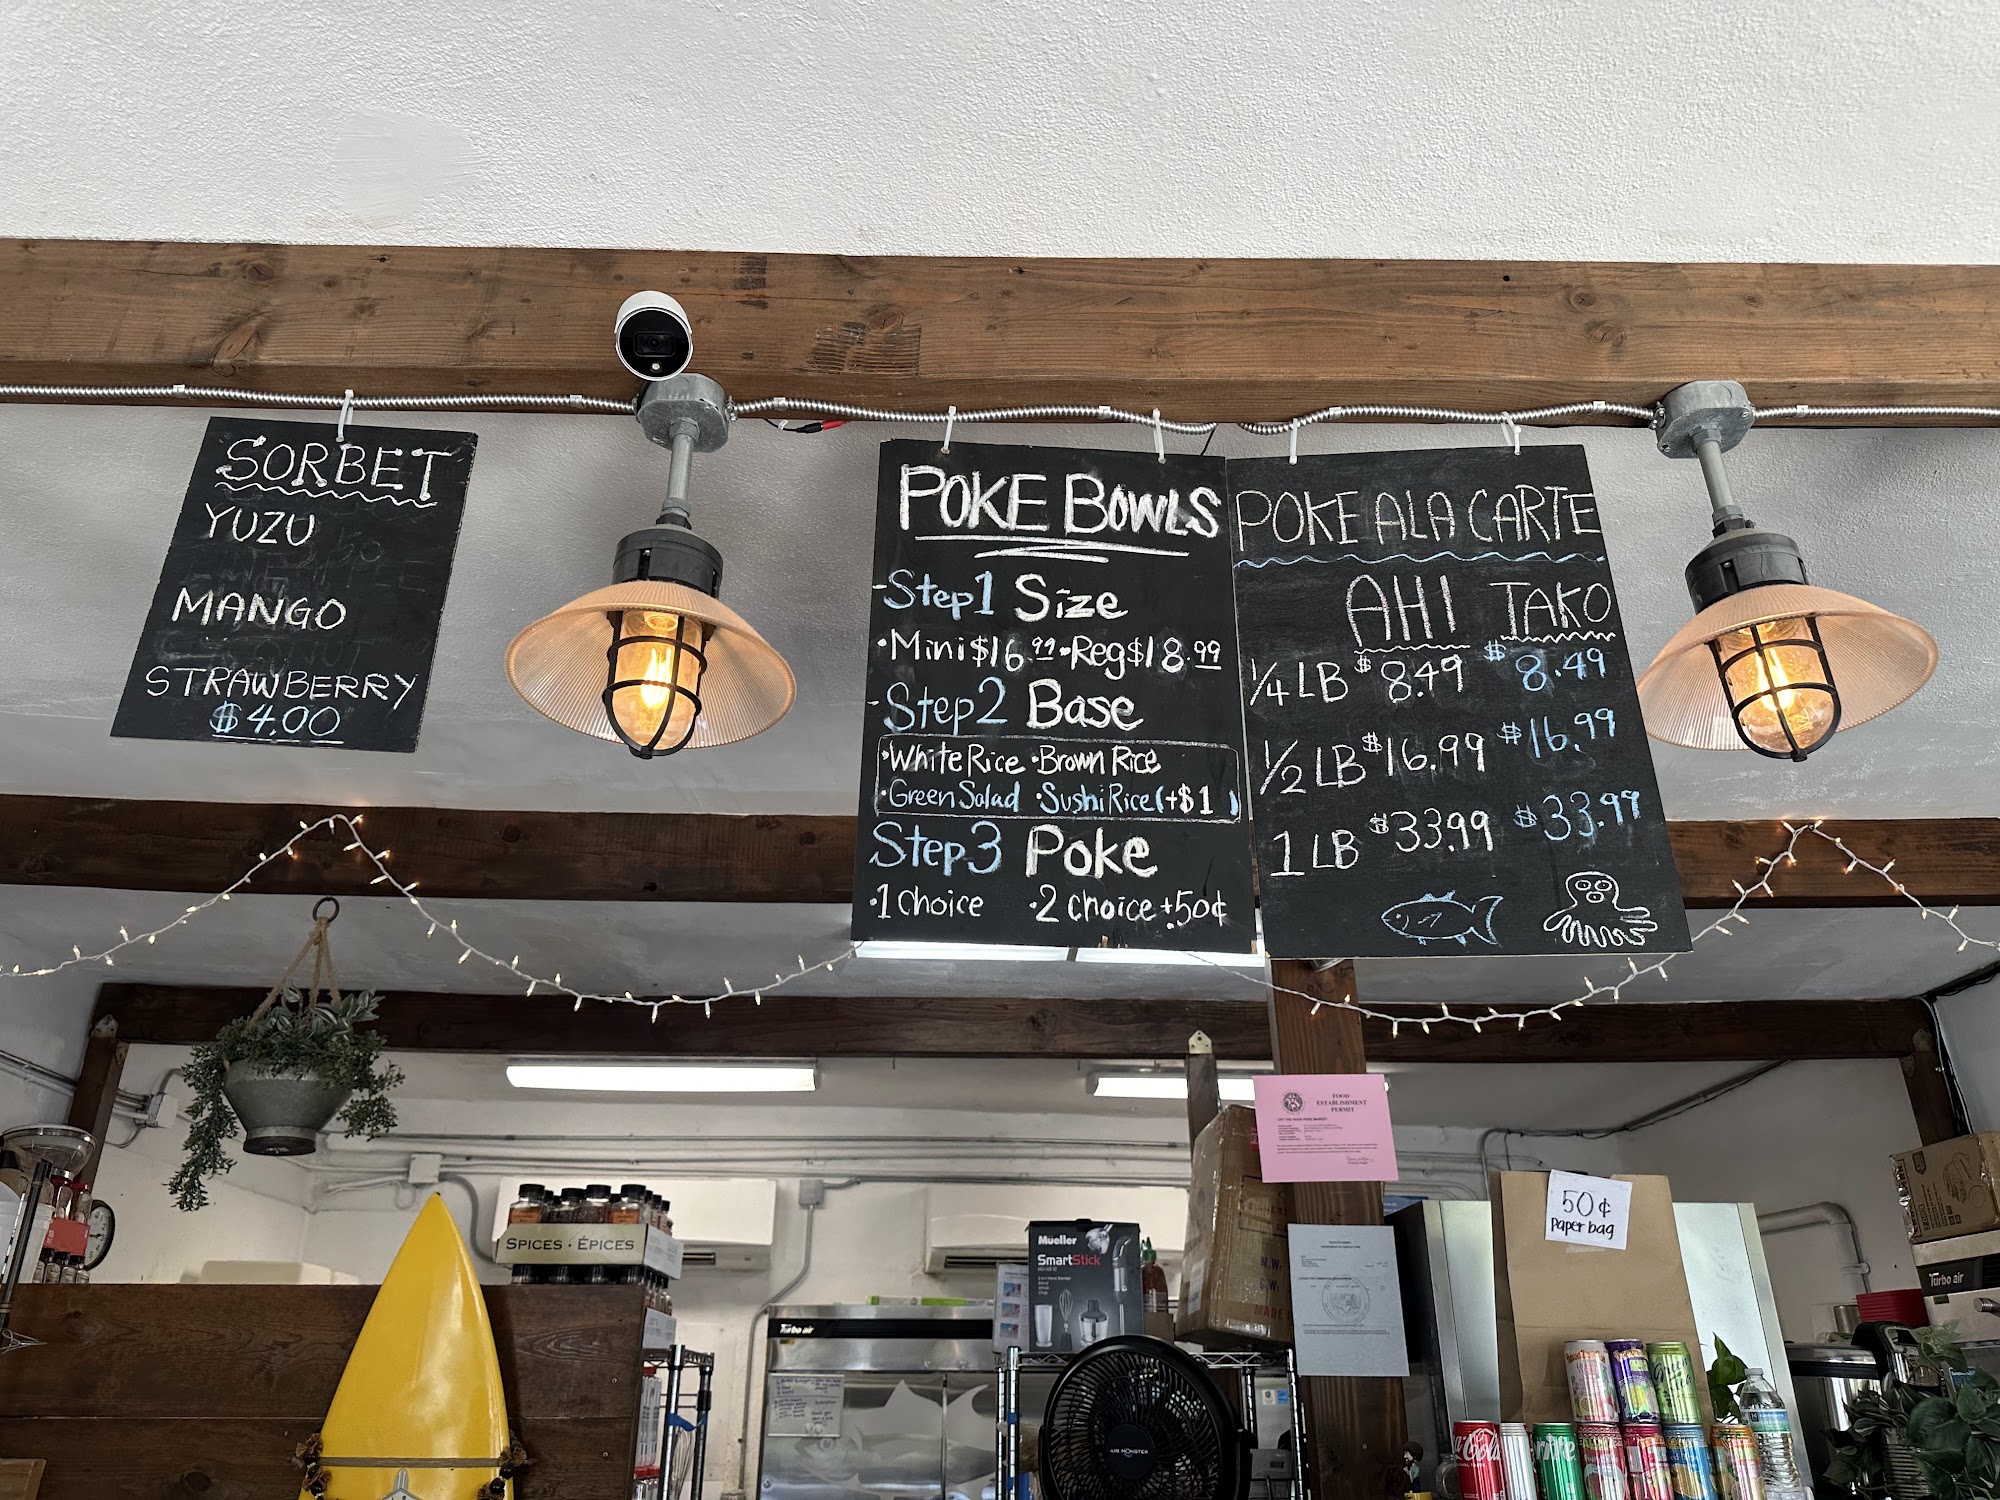 SORBET
YUZU
MANGO
STRAWBERRY
$4.00
POKE BOWLS
-Step1 Size
•Mini$16.99 •Reg$18.99
-Step2 Base
•White Rice •Brown Rice
•Green Salad •Sushi Rice (+$1)
Step3 Poke
•1 choice •2 choice +50¢
POKE ALA CARTE
AHI TAKO
1/4 LB $8.49 $8.49
1/2 LB $16.99 $16.99
1 LB $33.99 $33.99
FOOD
ESTABLISHMENT
PERMIT
50¢
Paper bag
SPICES · ÉPICES
Mueller
SmartStick
Turbo air
AIR MONSTER
Turbo air